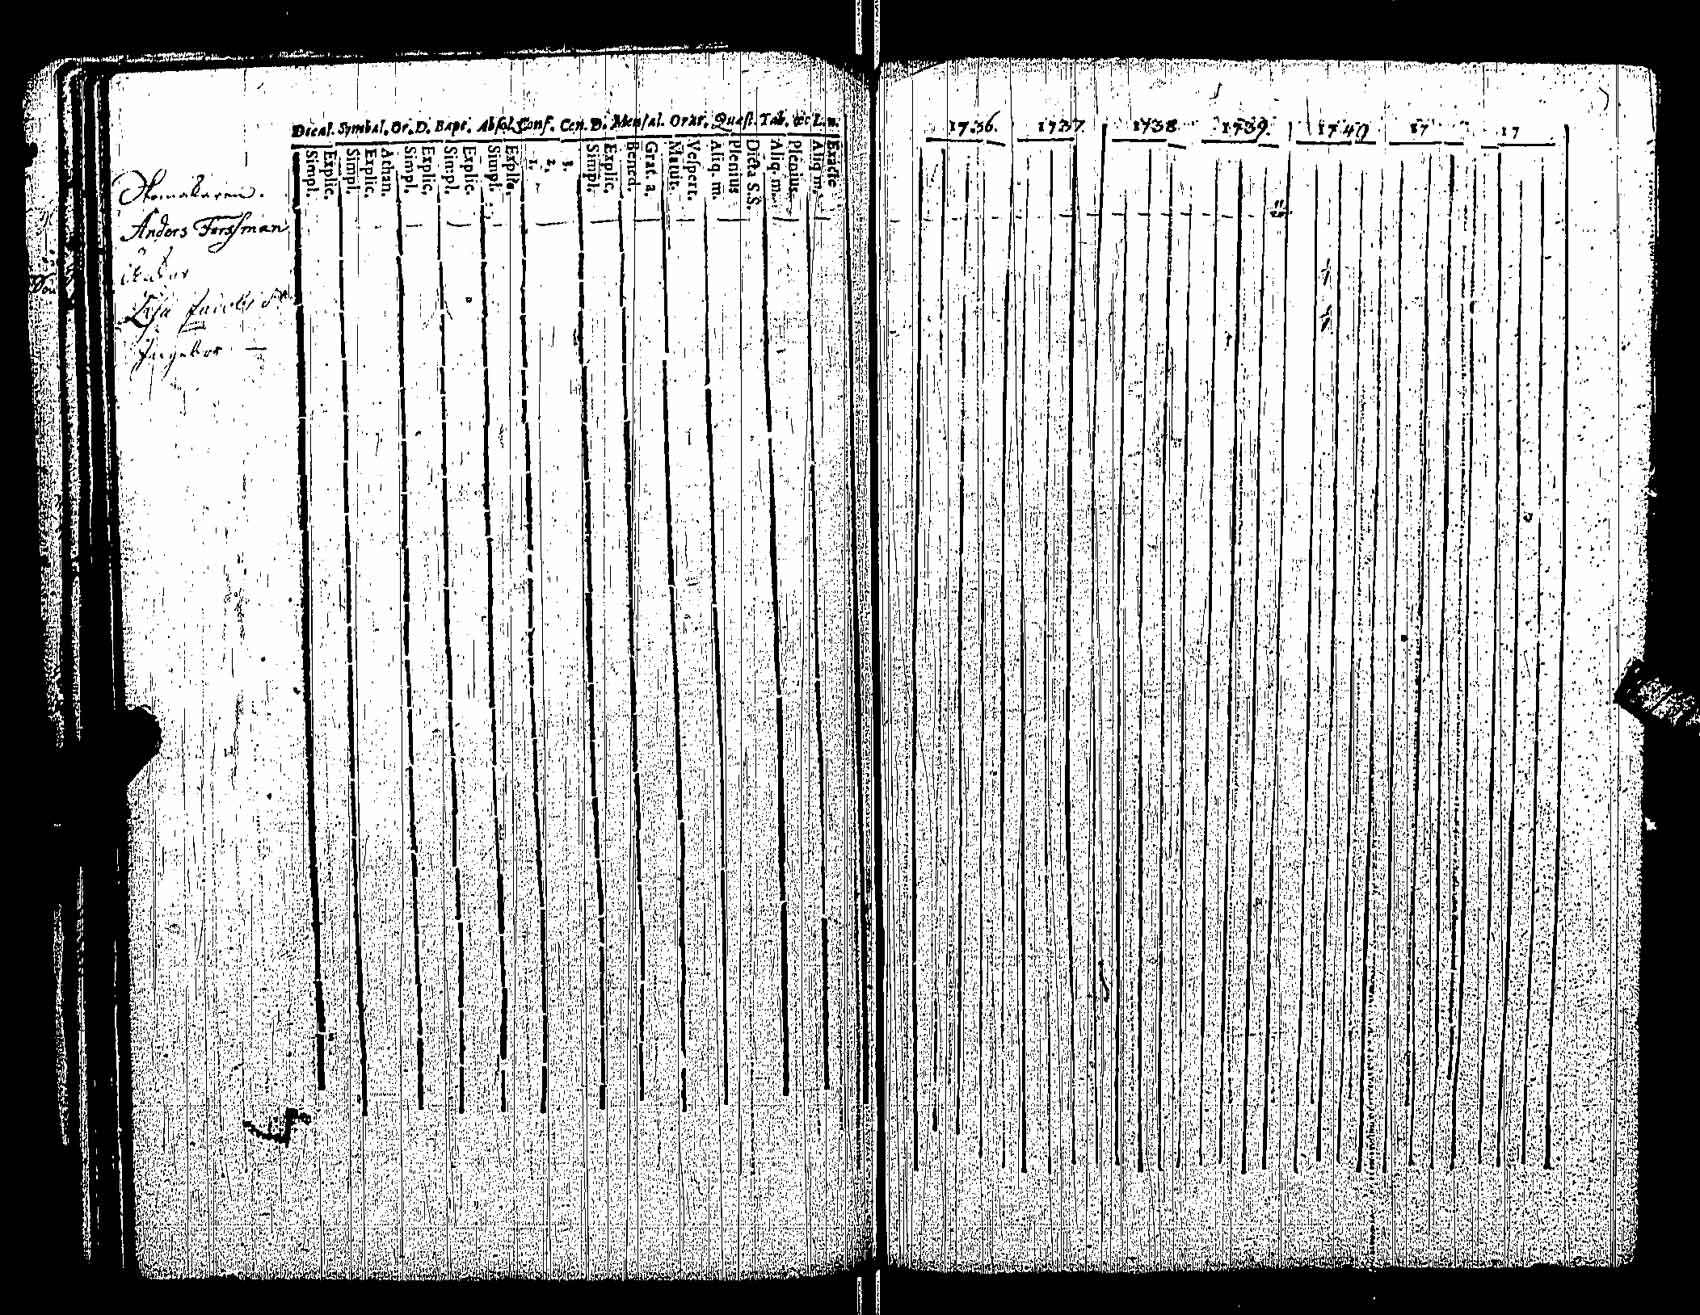 Decal. Symbol. Or. D. Bapt. Absol. Conf. Cen. D. Mensal. Orat. Quæst. Tab. &c L. n.
Simpl. Explic. Simpl. Explic. Athan. Simpl. Explic. Simpl. Explic. Simpl. Explic. 1. 2. 3. Simpl. Explic. Bened. Grat. a. Matut. Vespert. Aliq. m. Plenius Dicta S.S. Aliq. m. Plenius Aliq. m. Exacte
Anders Forssman
Ingebor —
1736. 1737 1738 1739. 1740 17 17